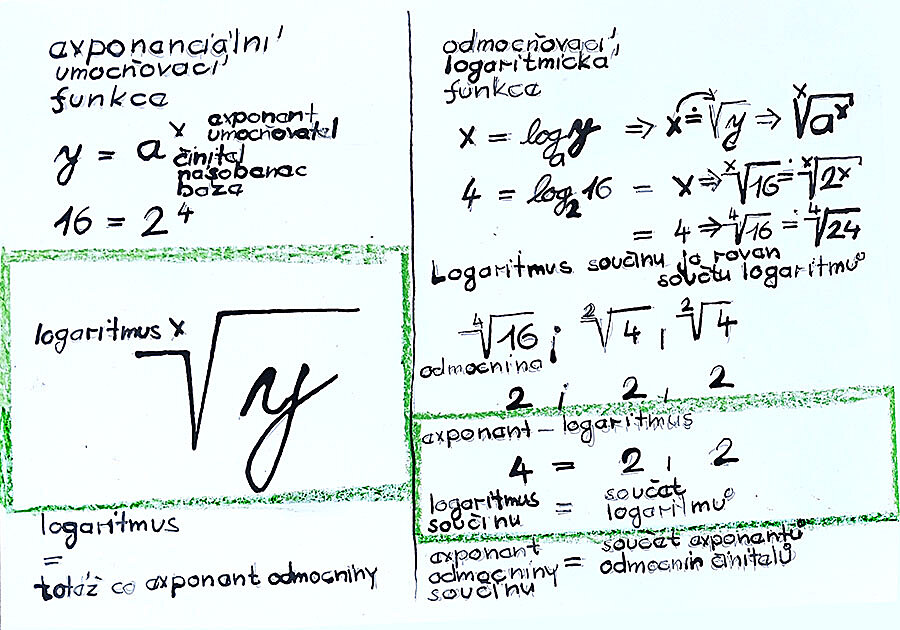 exponenciální
umocňovací
funkce
exponent
umocňovatel
y = a^x
činitel
násobenec
báze
16 = 2^4
logaritmus x √y
logaritmus
=
totéž co exponent odmocniny
odmocňovací
logaritmická
funkce
x = log_a y ⇒ x ≐ √y ⇒ ˣ√a^x
4 = log_2 16 = x ⇒ ˣ√16 ≐ ˣ√2^x
= 4 ⇒ ⁴√16 ≐ ⁴√24
Logaritmus součinu je roven
součtu logaritmů
⁴√16 ; ²√4 , ²√4
odmocnina
2 ; 2 , 2
exponent – logaritmus
4 = 2 , 2
logaritmus součinu = součet logaritmů
exponent odmocniny součinu = součet exponentů odmocnin činitelů